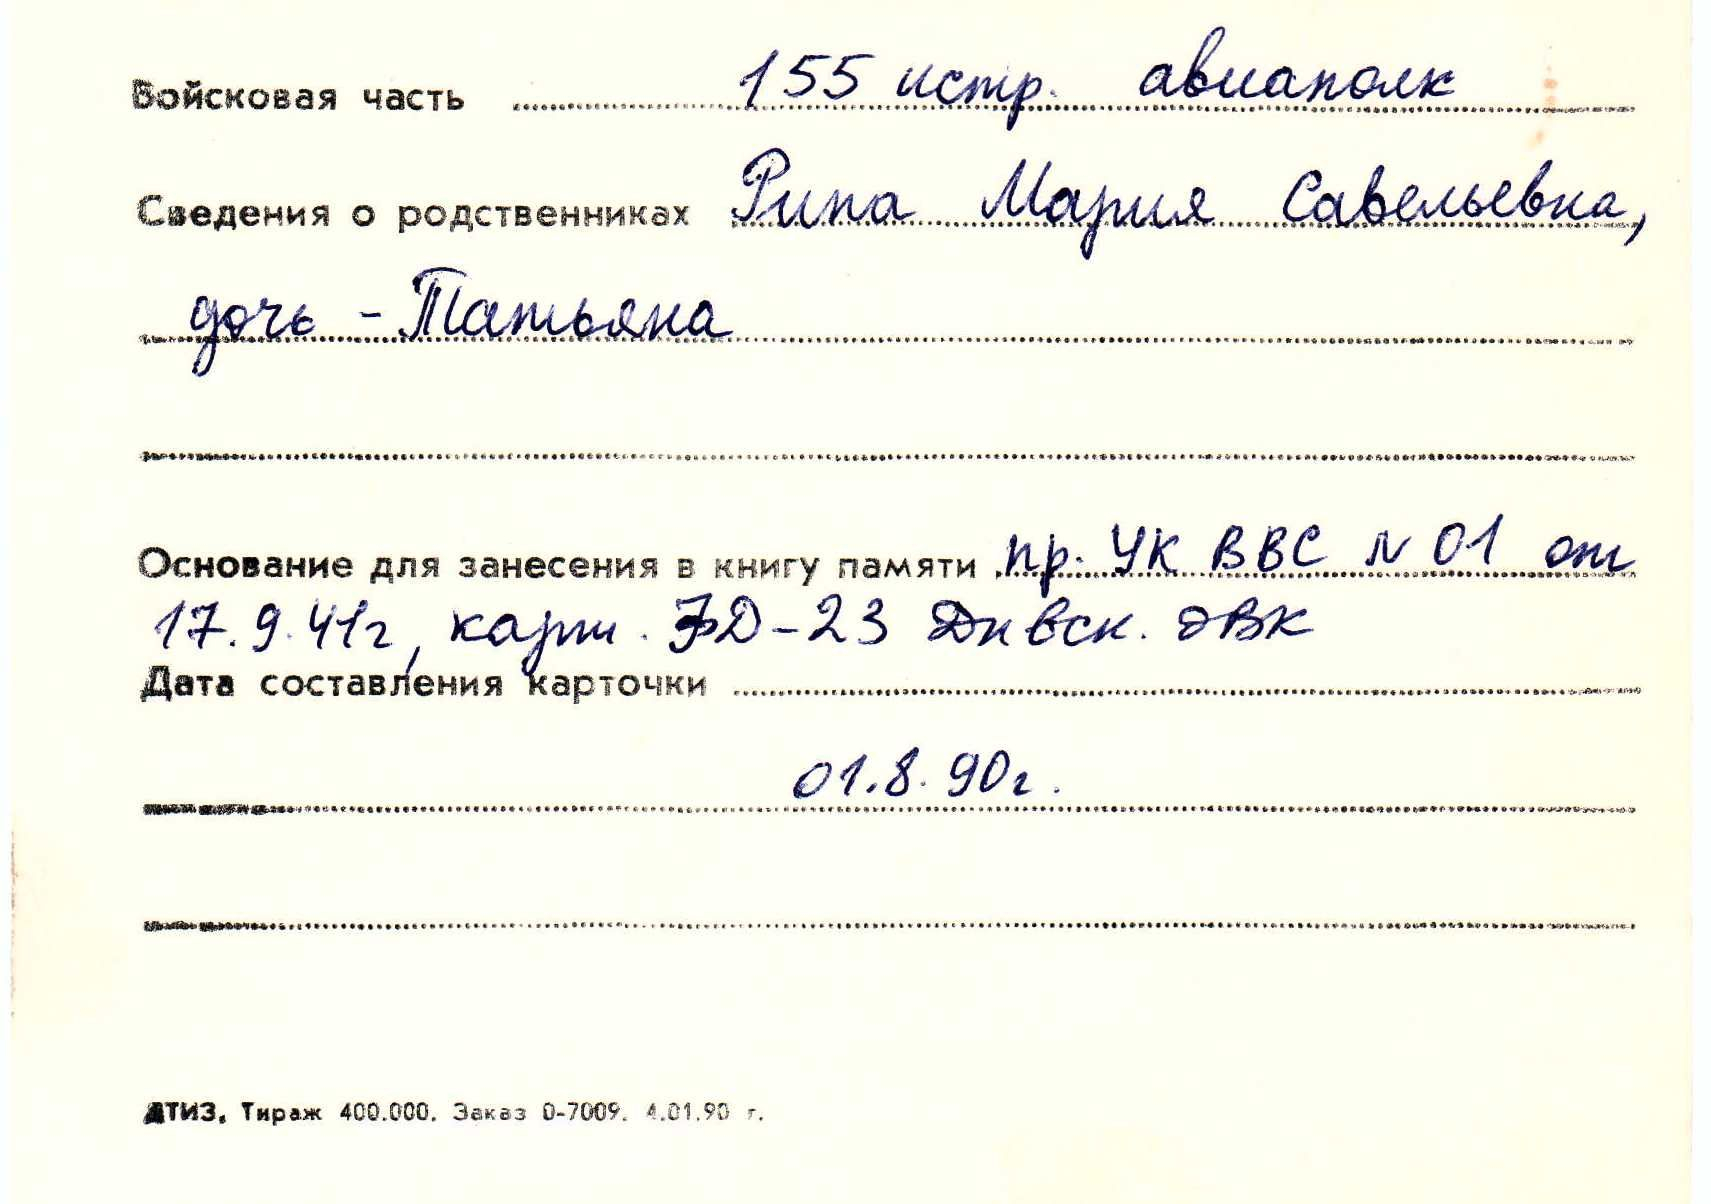 Войсковая часть 155 истр. авиаполк
Сведения о родственниках Рипа Мария Савельевна,
дочь - Татьяна
Основание для занесения в книгу памяти пр. УК ВВС N 01 от
17.9.41г, карт. ФД-23 Днвск. ОВК
Дата составления карточки
01.8.90г.
ДТИЗ. Тираж 400.000. Заказ 0-7009. 4.01.90 г.